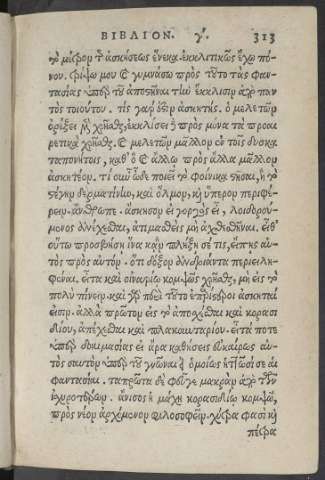 ΒΙΒΛΙΟΝ. γʹ. 313
τὸ μέτρον τῆς ἀσκήσεως ἕνεκα. ἐκκλιτικῶς ἔχω πό-
νου. τρίψω μου καὶ γυμνάσω πρὸς τοῦτο τὰς φαν-
τασίας ὑπὲρ τοῦ ἀποστῆναι τὴν ἔκκλισιν ἀπὸ παν
τὸς τοιούτου. τίς γάρ ἐστιν ἀσκητής. ὁ μελετῶν
ὀρέξει μὲν χρῆσθαι, ἐκκλίσει δὲ πρὸς μόνα τὰ προαι
ρετικὰ χρῆσθαι. καὶ μελετῶν μᾶλλον ἐν τοῖς δυσκα
ταπονήτοις, καθ' ὃ καὶ ἄλλῳ πρὸς ἄλλα μᾶλλον
ἀσκητέον. τί οὖν ὧδε ποιεῖ τὸ φοίνικα στῆσαι, ἢ τὸ
στέγην δερματίνην, καὶ ὅλμον, καὶ ὕπερον περιφέ-
ρειν. ἄνθρωπε. ἄσκησον εἰ γοργὸς εἶ, λοιδορού-
μενος ἀνέχεσθαι, ἀτιμασθεὶς μὴ ἀχθεσθῆναι. εἶθ'
οὕτω προσβήσῃ ἵνα κἂν πλήξῃ σέ τις, εἴπῃς αὐ-
τὸς πρὸς αὑτὸν. ὅτι δόξον ἀνδριάντα περιειλη-
φέναι. εἶτα καὶ οἰναρίῳ κομψῶς χρῆσθαι, μὴ εἰς τὸ
πολὺ πίνειν. καὶ γὰρ περὶ τοῦτο ἐπαρίστεροι ἀσκηταί
εἰσιν. ἀλλὰ πρῶτον εἰς τὸ ἀποσχέσθαι καὶ κορασι
δίου, ἀπέχεσθαι καὶ πλακουνταρίου. εἶτά ποτε
ὑπὲρ δοκιμασίας εἰ ἄρα καθήσεις εὐκαίρως αὐ-
τὸς σαυτὸν ὑπὲρ τοῦ γνῶναι εἰ ὁμοίως ἡττῶσί σε αἱ
φαντασίαι. τὰ πρῶτα δὲ φεῦγε μακρὰν ἀπὸ τῶν
ἰσχυροτέρων. ἄνισος ἡ μάχη κορασιδίῳ κομψῷ,
πρὸς νέον ἀρχόμενον φιλοσοφεῖν. χύτρα φασὶ καὶ
πέτρα